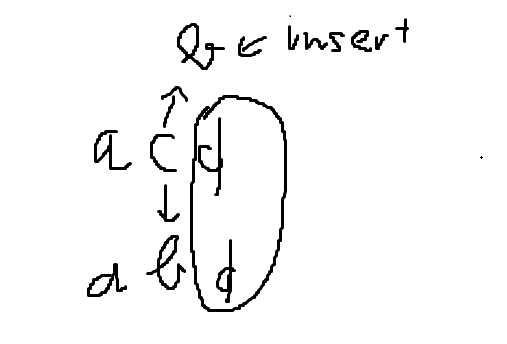 b ← insert
↑
a c d
↓
a b d